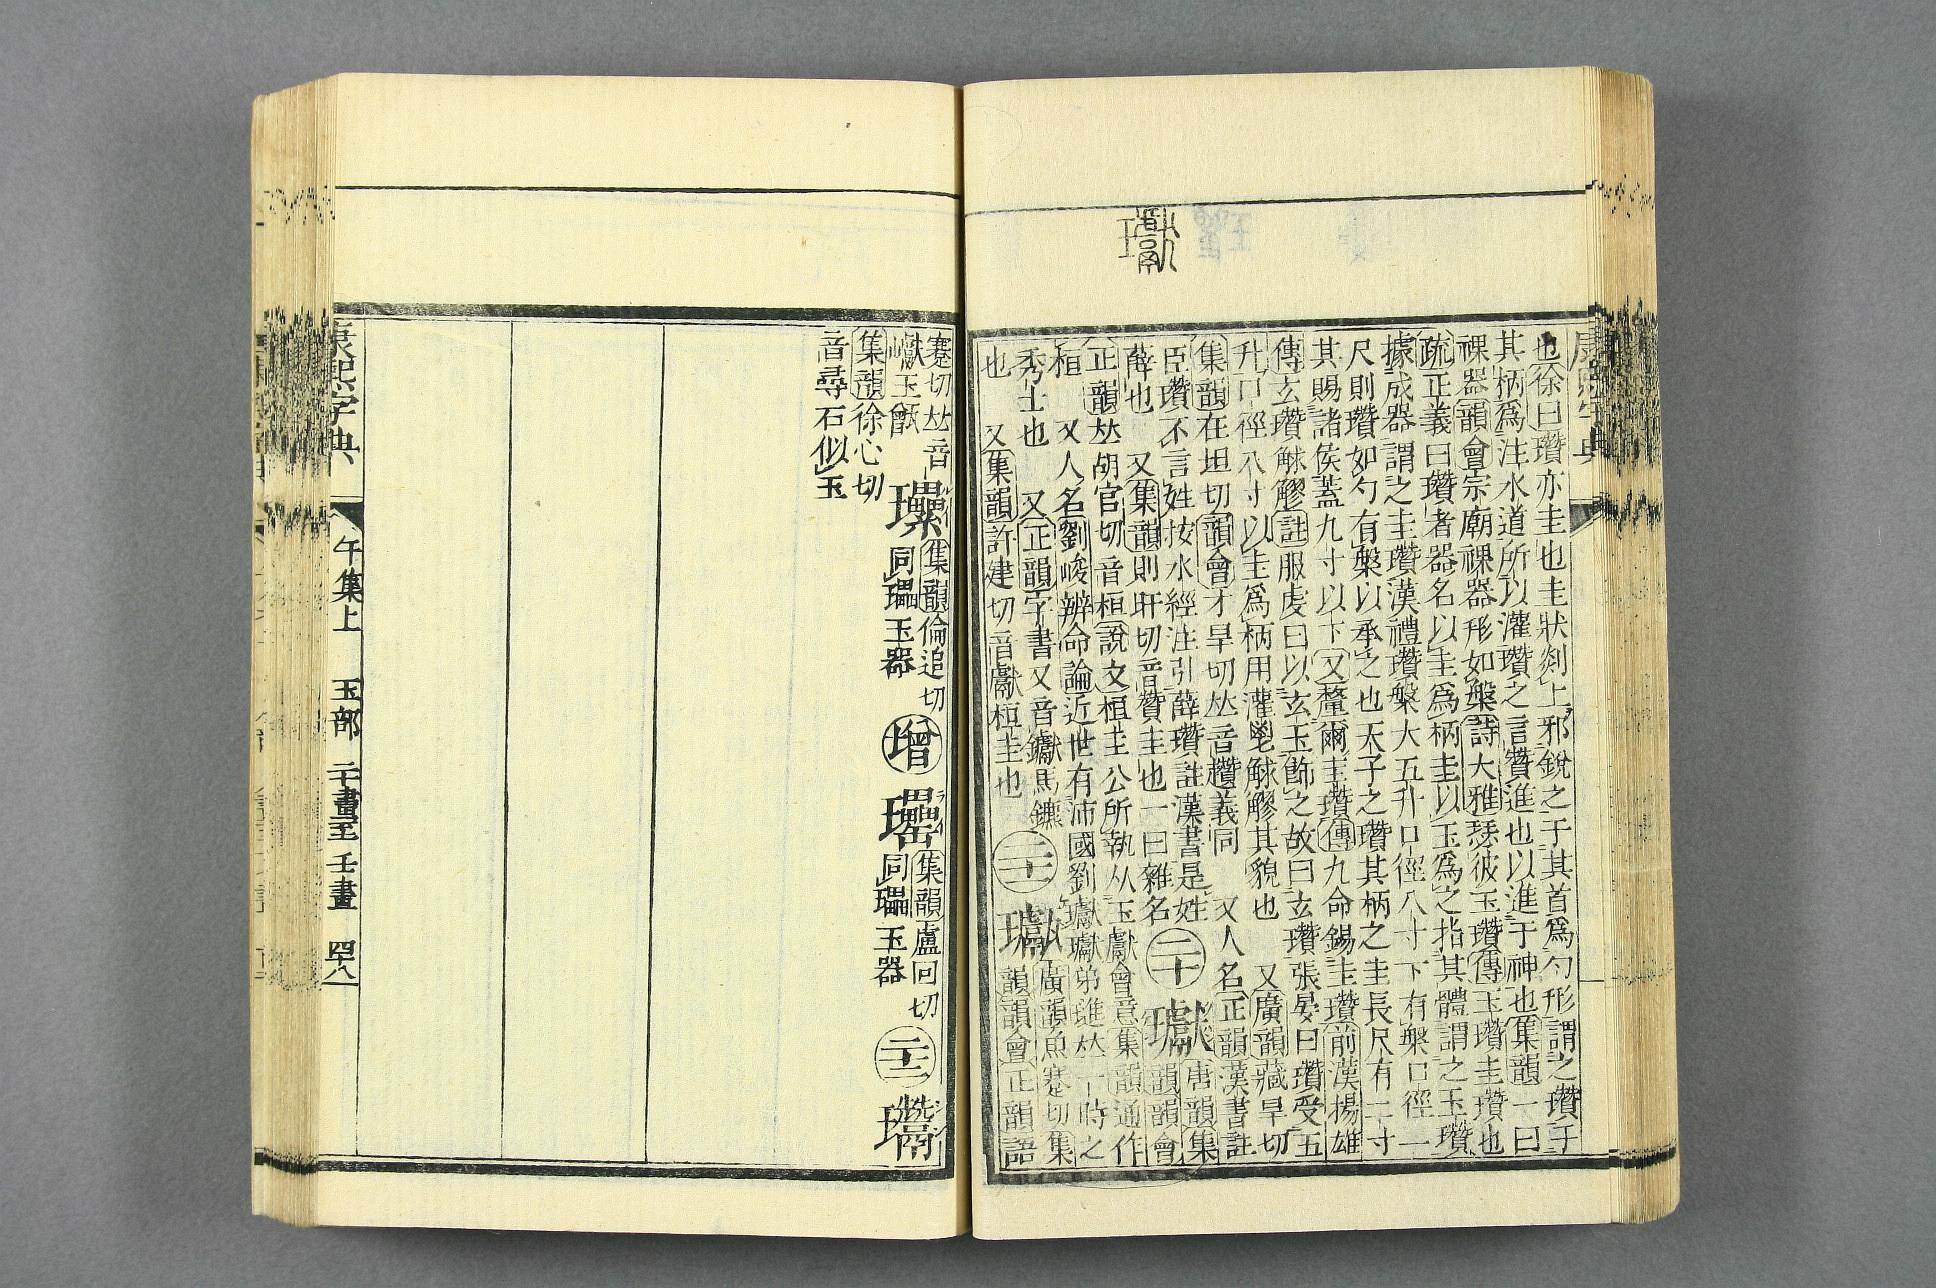 瓛
也徐曰瓚亦圭也圭狀剡上邪銳之于其首爲勺形謂之瓚于
其柄爲注水道所以灌瓚之言贊進也以進于神也集韻一曰
祼器韻會宗廟祼器形如槃詩大雅瑟彼玉瓚傳玉瓚圭瓚也
疏正義曰瓚者器名以圭爲柄圭以玉爲之指其體謂之玉瓚
據成器謂之圭瓚漢禮瓚槃大五升口徑八寸下有槃口徑一
尺則瓚如勺有槃以承之也天子之瓚其柄之圭長尺有二寸
其賜諸侯蓋九寸以下又釐爾圭瓚傳九命錫圭瓚前漢揚雄
傳玄瓚觩䚧註服虔曰以玄玉飾之故曰玄瓚張晏曰瓚受五
升口徑八寸以圭爲柄用灌鬯觩䚧其貌也 又廣韻藏旱切
集韻在坦切韻會才旱切𠀤音趲義同 又人名正韻漢書註
臣瓚不言姓按水經注引薛瓚註漢書是姓
薛也 又集韻則旰切音贊圭也一曰雜名
二十
瓛
唐韻集韻韻會
正韻𠀤胡官切音桓說文桓圭公所執从玉獻會意集韻通作
桓 又人名劉峻辨命論近世有沛國劉瓛瓛弟璡𠀤一時之
秀士也 又正韻字書又音钀馬鑣
也 又集韻許建切音獻桓圭也
二十
廣韻魚蹇切集
韻韻會正韻語
蹇切𠀤音
巘玉甑
集韻倫追切
同瓃玉器
增
集韻盧回切
同瓃玉器
集韻徐心切
音尋石似玉
康熙字典
午集上 玉部